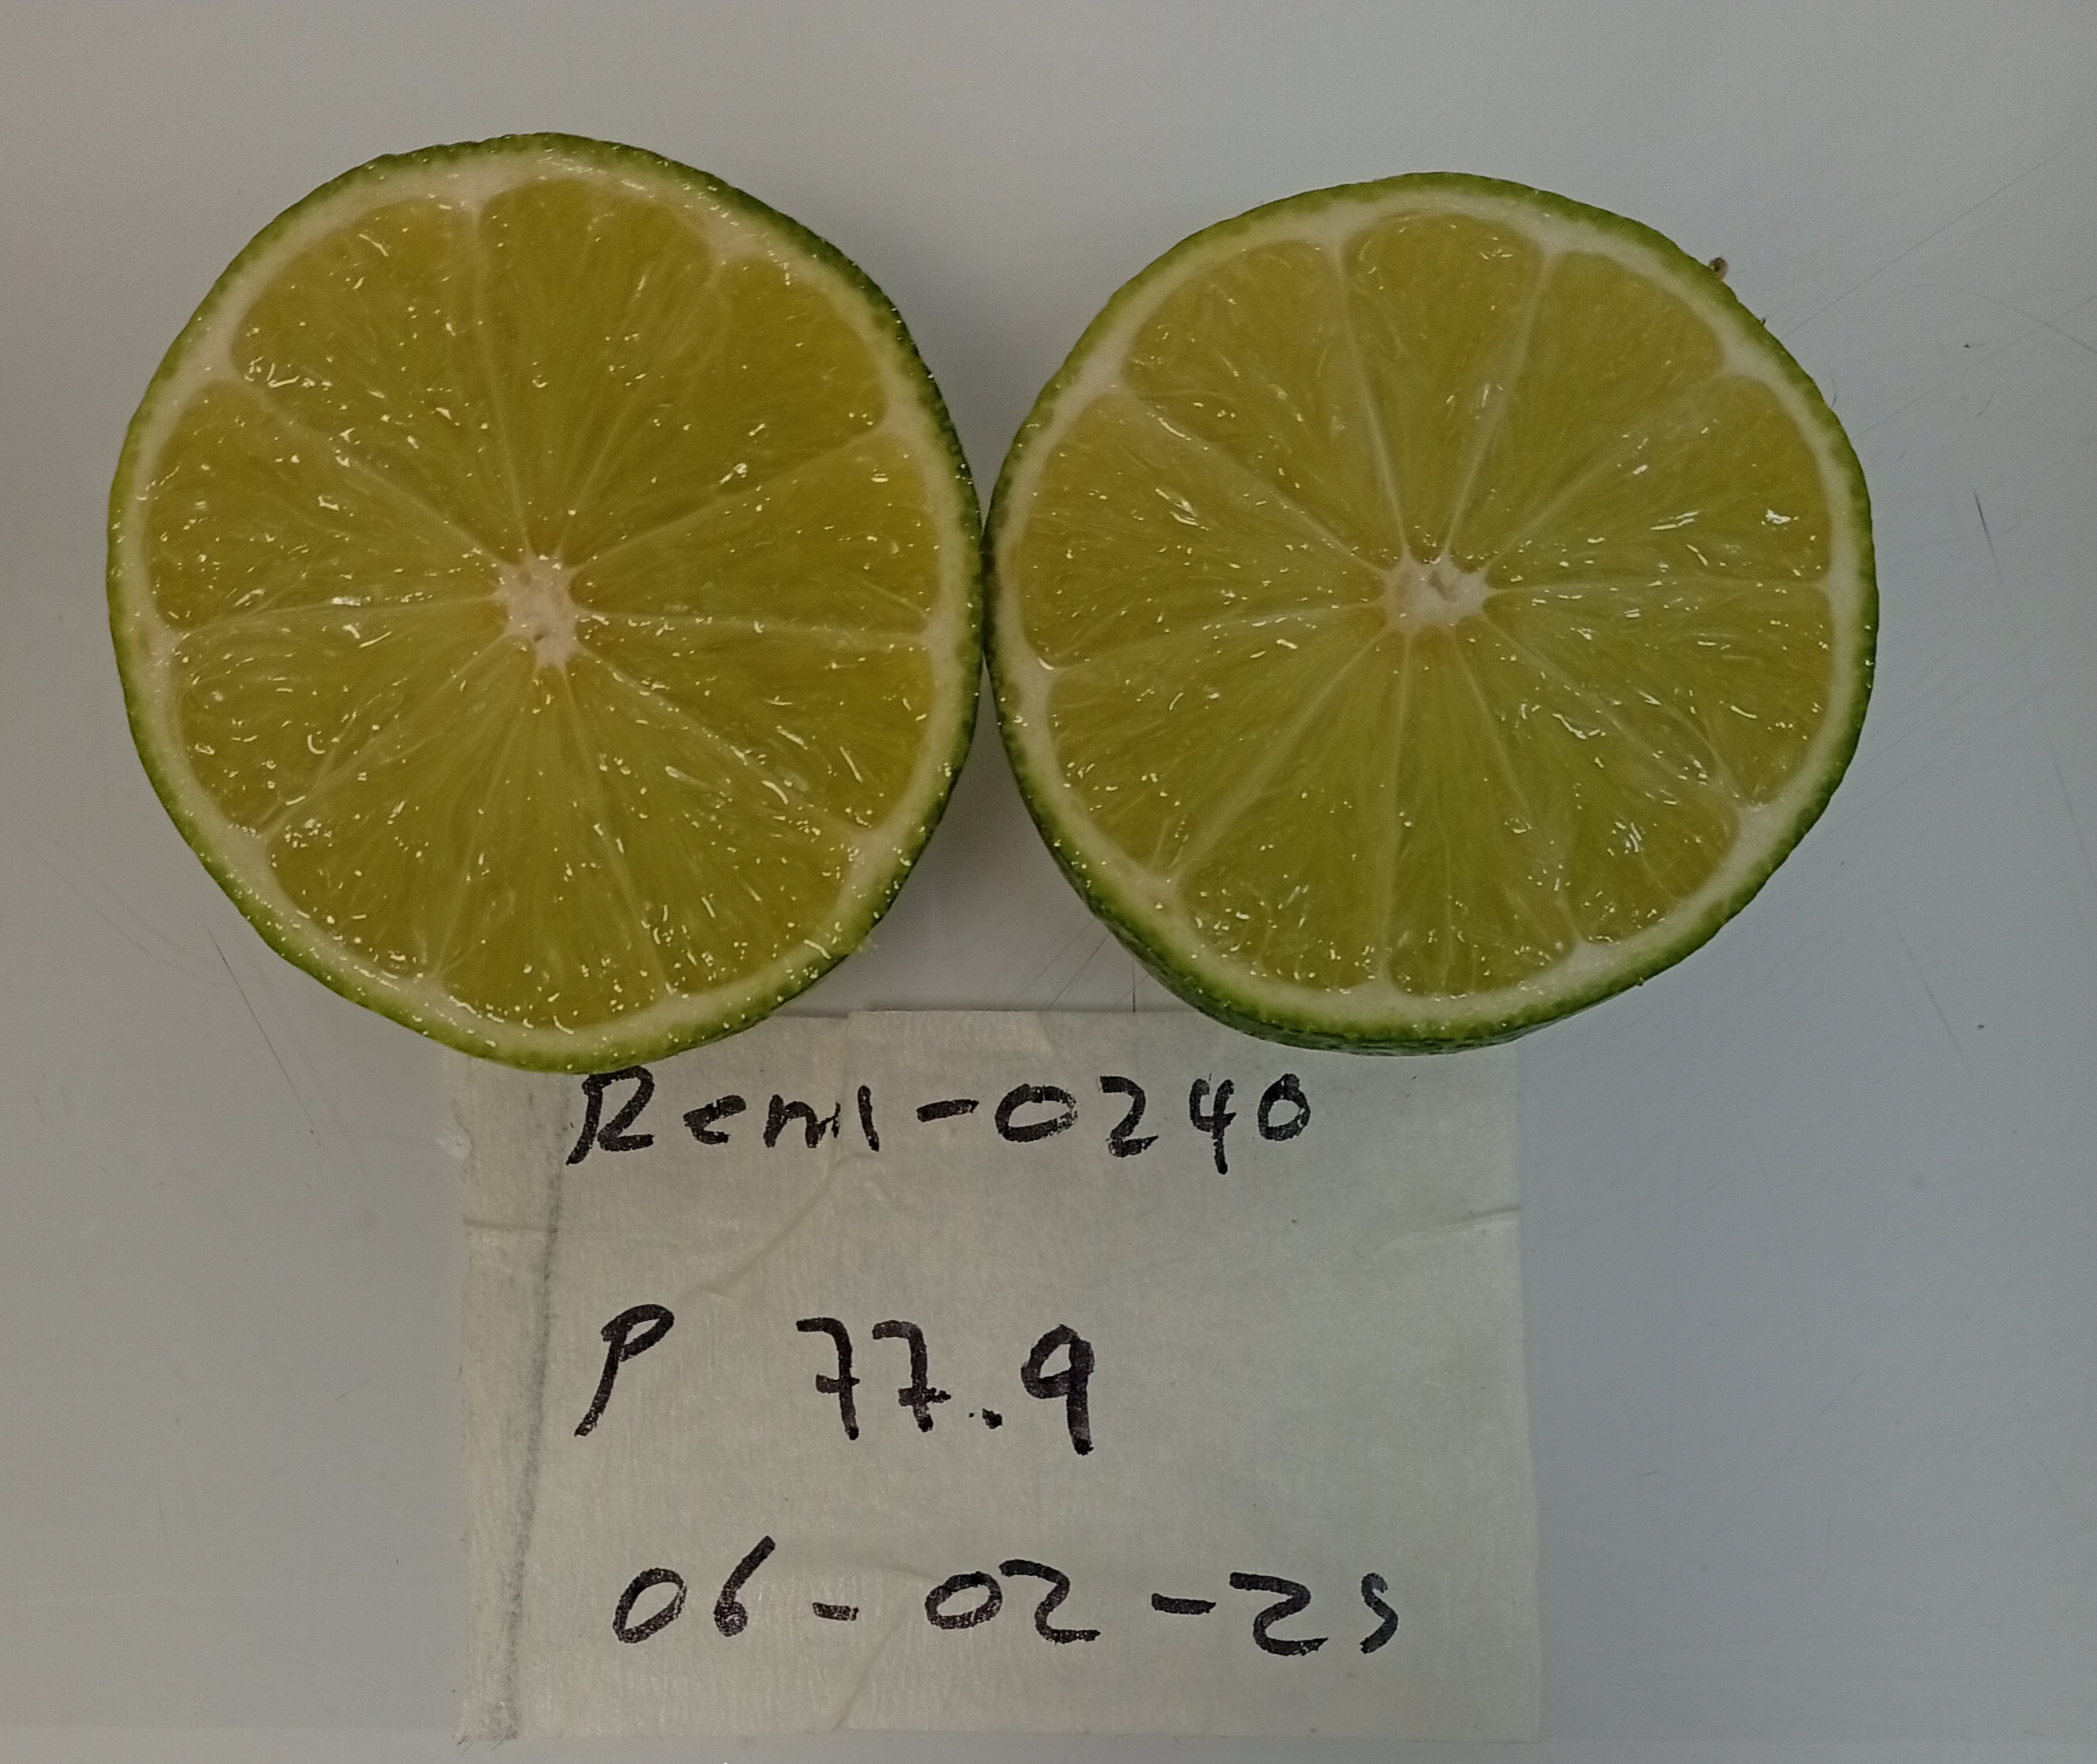 Reml-0240
P 77.9
06-02-25